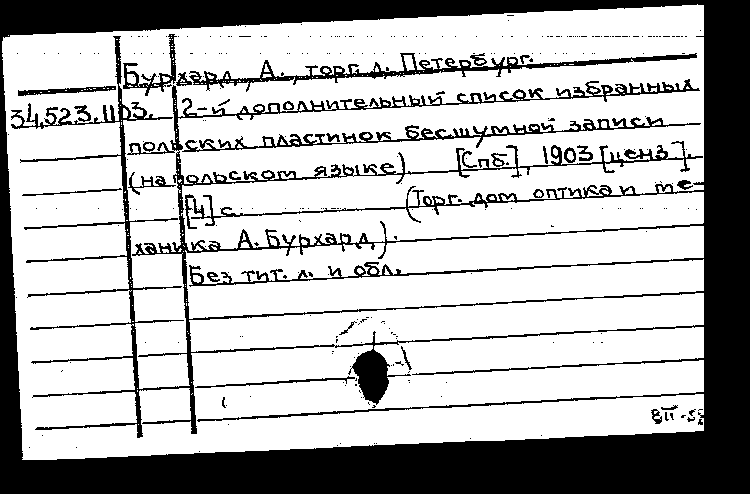 Бурхард, А., торг. д. Петербург.
34.523.1103. 2-й дополнительный список избранных
польских пластинок бесшумной записи
(на польском языке). [Спб.], 1903 [ценз.].
[4] с. (Торг. дом оптика и ме-
ханика А. Бурхард,).
Без тит. л. и обл.